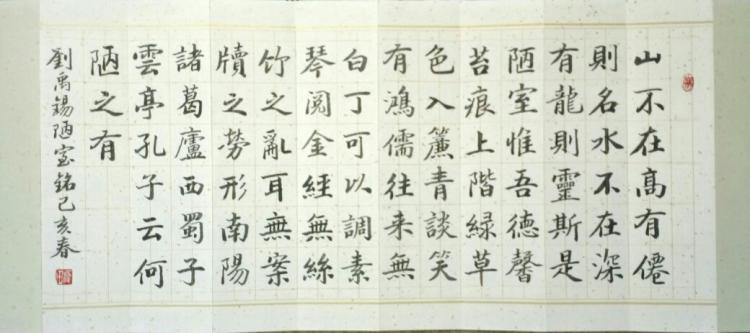 山不在高有僊
則名水不在深
有龍則靈斯是
陋室惟吾德馨
苔痕上階緑草
色入簾青談笑
有鴻儒往来無
白丁可以調素
琴閲金經無絲
竹之亂耳無案
牘之勞形南陽
諸葛廬西蜀子
雲亭孔子云何
陋之有
劉禹錫陋室銘己亥春